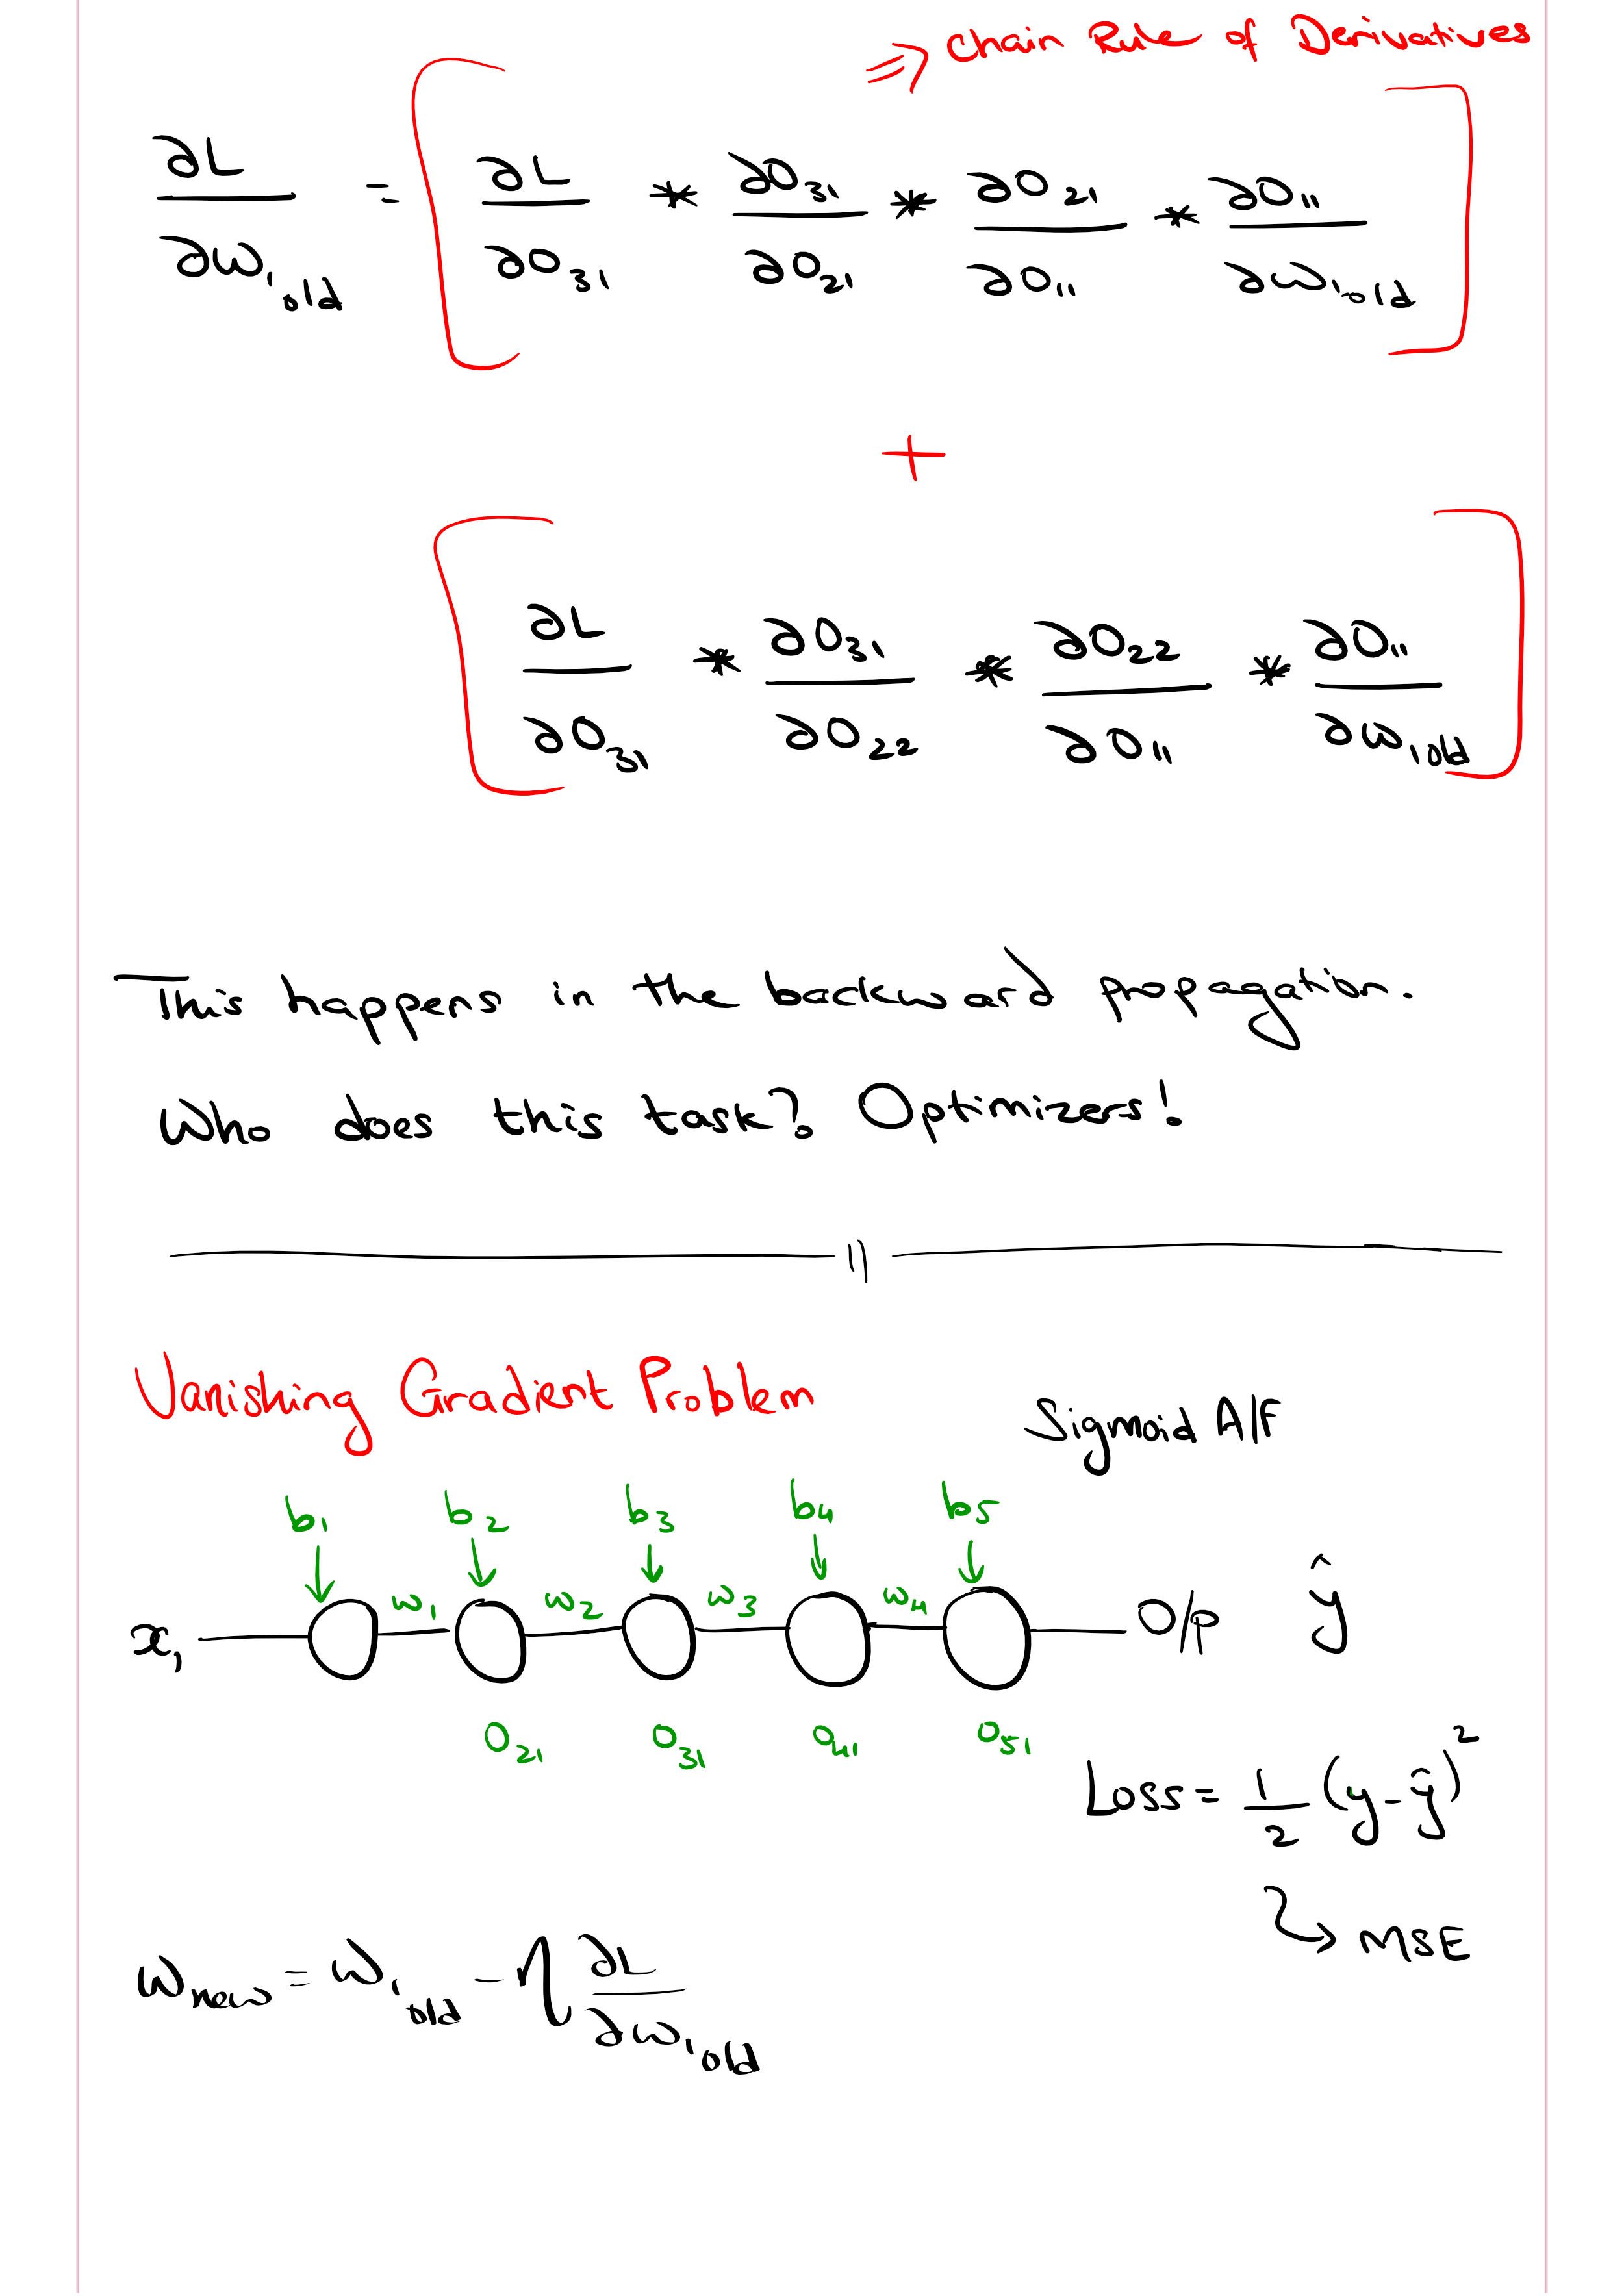 ⇒ Chain Rule of Derivatives
∂L/∂w₁old = [ ∂L/∂O₃₁ * ∂O₃₁/∂O₂₁ * ∂O₂₁/∂O₁₁ * ∂O₁₁/∂w₁old ]
+
[ ∂L/∂O₃₁ * ∂O₃₁/∂O₂₂ * ∂O₂₂/∂O₁₁ * ∂O₁₁/∂w₁old ]
This happens in the backward propagation.
Who does this task? Optimizers!
Vanishing Gradient Problem
Sigmoid A/F
b₁ b₂ b₃ b₄ b₅
x₁ w₁ w₂ w₃ w₄ O/p ŷ
O₂₁ O₃₁ O₄₁ O₅₁
Loss = 1/2 (y - ŷ)²
MSE
wnew = w₁old - η ∂L/∂w₁old